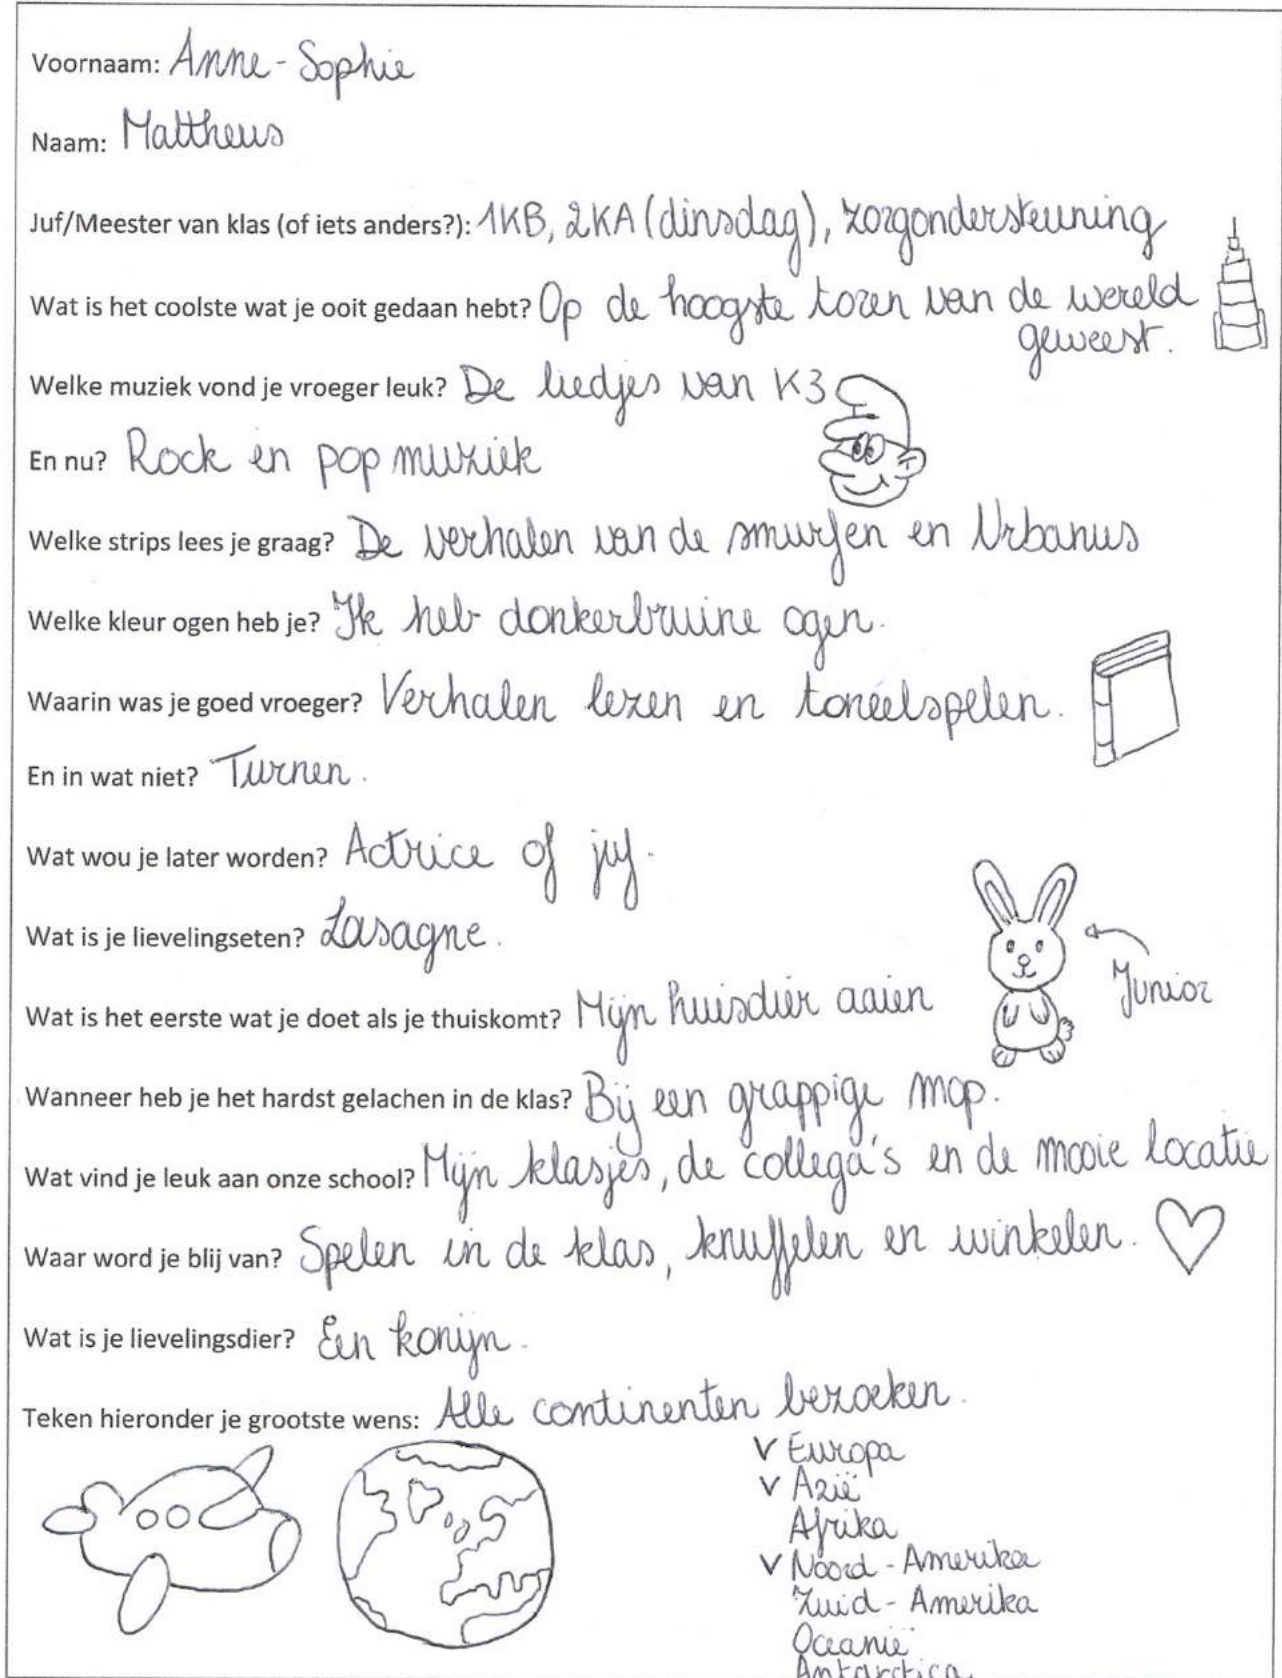 Voornaam: Anne-Sophie
Naam: Mattheus
Juf/Meester van klas (of iets anders?): 1KB, 2KA (dinsdag), zorgondersteuning
Wat is het coolste wat je ooit gedaan hebt? Op de hoogste toren van de wereld
geweest.
Welke muziek vond je vroeger leuk? De liedjes van K3
En nu? Rock en pop muziek
Welke strips lees je graag? De verhalen van de smurfen en Urbanus
Welke kleur ogen heb je? Ik heb donkerbruine ogen.
Waarin was je goed vroeger? Verhalen lezen en toneelspelen.
En in wat niet? Turnen.
Wat wou je later worden? Actrice of juf.
Wat is je lievelingseten? Lasagne.
Wat is het eerste wat je doet als je thuiskomt? Mijn huisdier aaien
Junior
Wanneer heb je het hardst gelachen in de klas? Bij een grappige mop.
Wat vind je leuk aan onze school? Mijn klasjes, de collega's en de mooie locatie
Waar word je blij van? Spelen in de klas, knuffelen en winkelen.
Wat is je lievelingsdier? Een konijn.
Teken hieronder je grootste wens: Alle continenten bezoeken.
V Europa
V Azië
Afrika
V Noord-Amerika
Zuid-Amerika
Oceanië
Antarctica